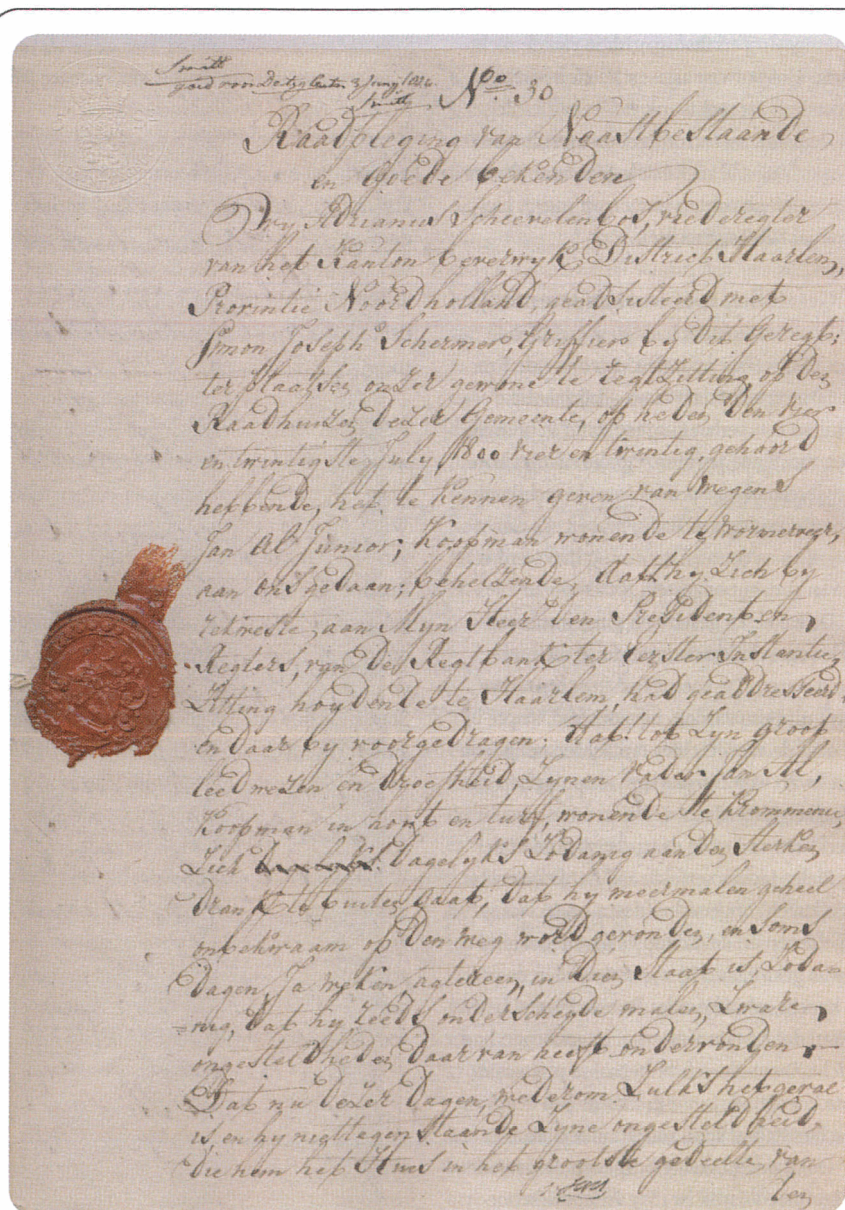 Smitt
goed voor
Smitt
No. 30
Raadpleging van Naastbestaande
en Goede bekenden
Wy Adrianus Scheevelenbos, vrederegter
van het Kanton Beverwyk, District Haarlem,
Provintie Noordholland, geadsisteerd met
Simon Joseph Schermer, Griffier by dit Geregt;
ter plaatse onzer gewone te regtzitting, op den
Raadhuize dezer Gemeente, op heden den vier
en twintigste July 1800 vier en twintig, gehoord
hebbende, het te kennen geven van wegens
Jan Al Junior, Koopman wonende te Wormerveer,
aan ons gedaan; behelzende, dat hy zich by
rekweste, aan Myn Heer den President en
Regters, van de Regtbank ter eerster Instantie,
Zitting houdende te Haarlem, had geaddresseerd
en daar by voorgedragen; Dat! tot zyn groot
leedwezen en droefheid, zynen vader Jan Al,
Koopman in hout en turf, wonende te Krommenie,
zich dagelyks zodanig aan den sterken
drank te buiten gaat, dat hy meermalen geheel
onbekwaam op den weg word gevonden, en soms
dagen, Ja weken, agtereen, in dien staat is, zoda=
=nig, dat hy, reeds onderscheyde malen, zware
ongesteldheden daar van heeft ondervonden
Dat nu dezer dagen, wederom zulks het geval
is, en hy niettegenstaande zyne ongesteldheid,
die hem het Huis in het grootste gedeelte van
den